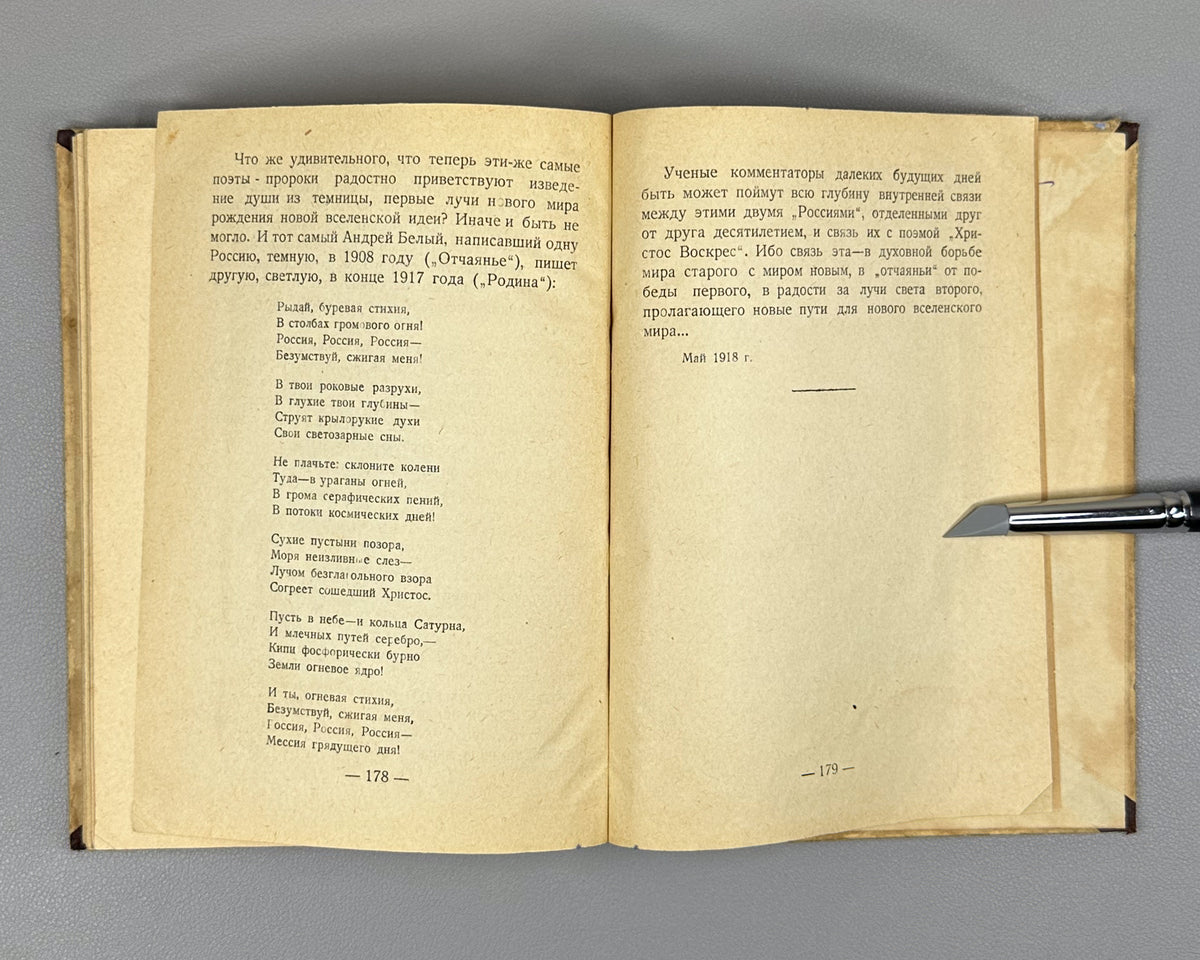 Что же удивительного, что теперь эти-же самые
поэты - пророки радостно приветствуют изведе-
ние души из темницы, первые лучи нового мира
рождения новой вселенской идеи? Иначе и быть не
могло. И тот самый Андрей Белый, написавший одну
Россию, темную, в 1908 году („Отчаянье“), пишет
другую, светлую, в конце 1917 года („Родина“):
Рыдай, буревая стихия,
В столбах громового огня!
Россия, Россия, Россия—
Безумствуй, сжигая меня!
В твои роковые разрухи,
В глухие твои глубины—
Струят крылорукие духи
Свои светозарные сны.
Не плачьте: склоните колени
Туда—в ураганы огней,
В грома серафических пений,
В потоки космических дней!
Сухие пустыни позора,
Моря неизливные слез—
Лучом безглагольного взора
Согреет сошедший Христос.
Пусть в небе—и кольца Сатурна,
И млечных путей серебро,—
Кипи фосфорически бурно
Земли огневое ядро!
И ты, огневая стихия,
Безумствуй, сжигая меня,
Россия, Россия, Россия—
Мессия грядущего дня!
— 178 —
Ученые комментаторы далеких будущих дней
быть может поймут всю глубину внутренней связи
между этими двумя „Россиями“, отделенными друг
от друга десятилетием, и связь их с поэмой „Хри-
стос Воскрес“. Ибо связь эта—в духовной борьбе
мира старого с миром новым, в „отчаяньи“ от по-
беды первого, в радости за лучи света второго,
пролагающего новые пути для нового вселенского
мира...
Май 1918 г.
— 179 —